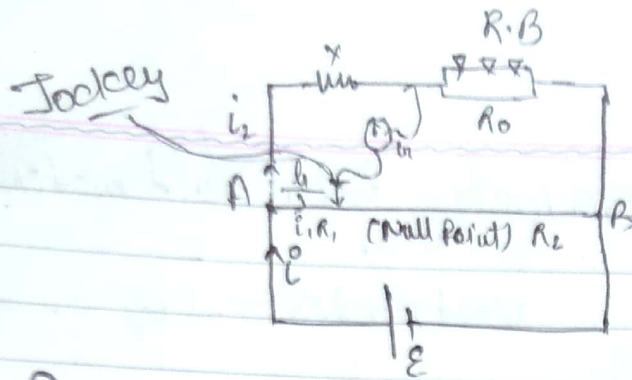 R.B
X
Jockey
R₀
i₂
G
A l₁ B
i₁R₁ (Null Point) R₂
i
ε